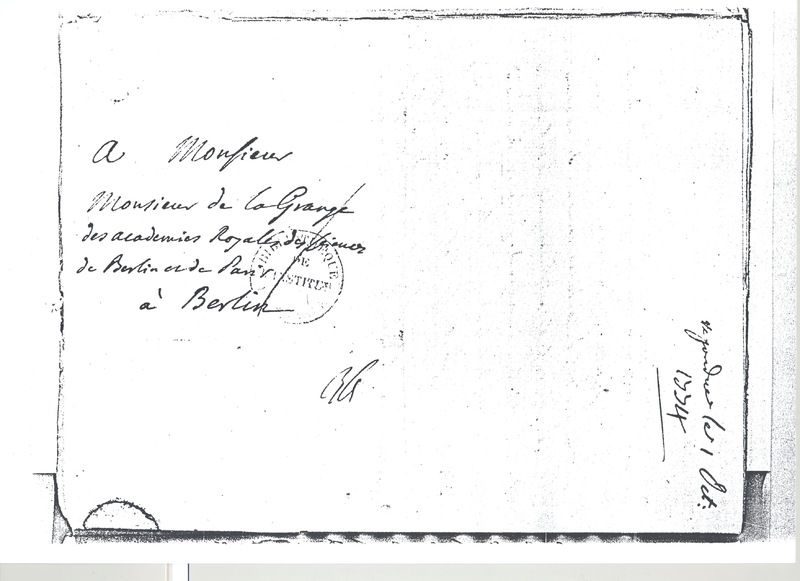 A Monsieur
Monsieur de la Grange
des academies Royales des Sciences
de Berlin et de Paris
à Berlin
BIBLIOTHEQUE
DE
L'INSTITUT
le 1 Oct.